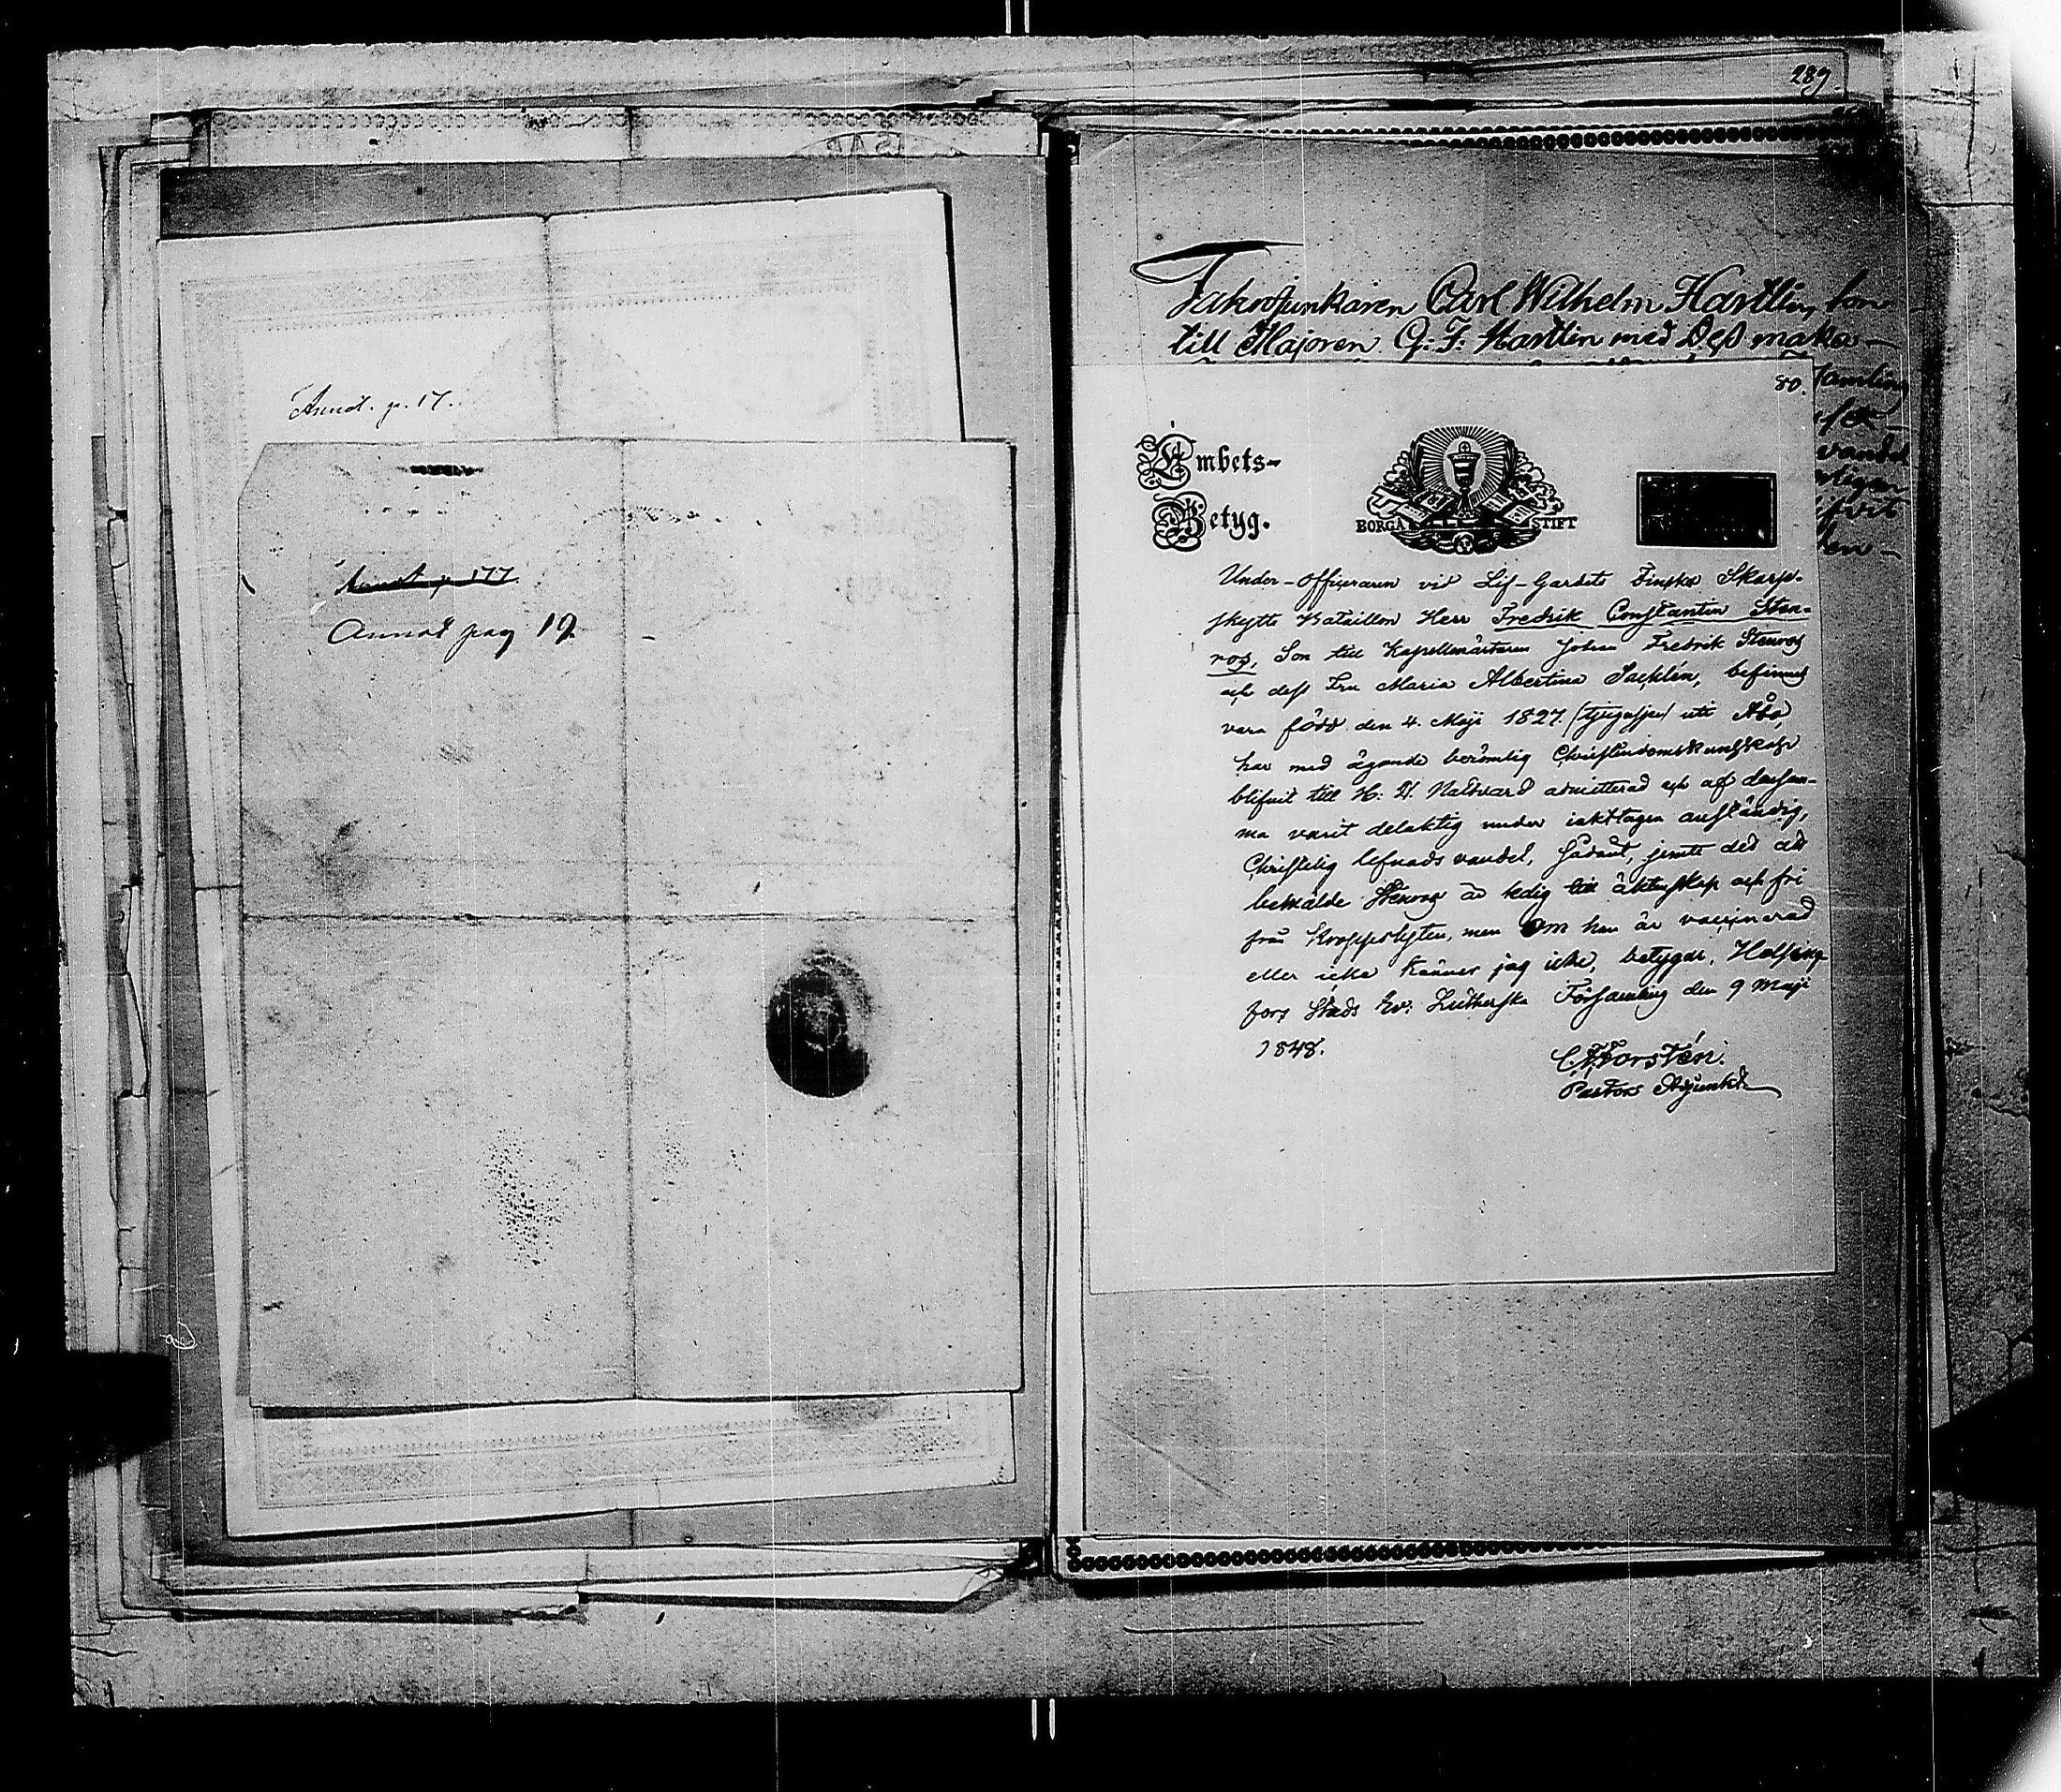 Annot. p. 17.
Annot p 177.
Annot pag 19.
289.
Fahnejunkaren Carl Wilhelm Hartlin, son
till Majoren G: F: Hartlin med Dess maka
80.
Embets-
Betyg.
BORGÅ STIFT
Under-officeraren vid Lif-Gardets Finska Skarp-
skytte Bataillon Herr Fredrik Constantin Sten-
ros, Son till Kapellmästaren Johan Fredrik Stenros
och dess Fru Maria Albertina Sacklén, befinnes
vara född den 4. Maji 1827. (tjugusju) uti Åbo,
har med ägande berömlig Christendomskunskap
blifvit till H: H. Nattvard admitterad och af densam-
ma varit delaktig under iakttagen anständig,
Christelig lefnads vandel, sådant, jemte det att
bemälde Stenros är ledig till äktenskap och fri
från kroppslyten, men Om han är vaccinerad
eller icke känner jag icke, betygar, Helsing
fors Stads Ev: Lutherska Församling den 9 Maji
1848.
Forstén.
Pastors Adjunkt